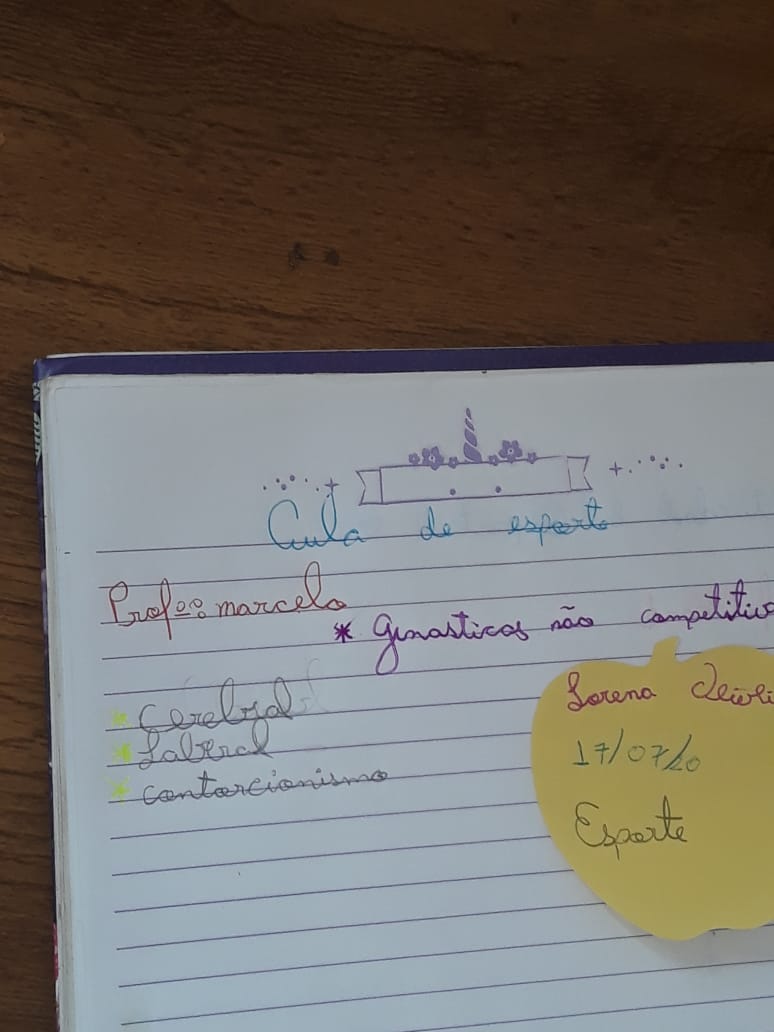 Aula de esporte
Profº: marcelo
* ginasticas não competitiva
* Cerebral
* Laboral
* contorcionismo
Lorena
17/07/20
Esporte